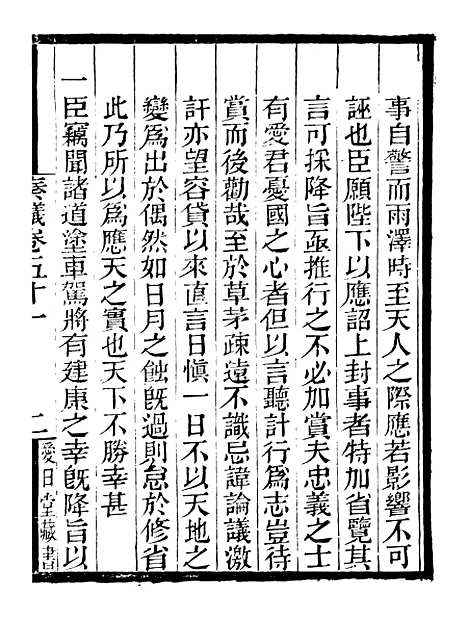 事自警而雨澤時至天人之際應若影響不可
誣也臣願陛下以應詔上封事者特加省覽其
言可採降旨亟推行之不必加賞夫忠義之士
有愛君憂國之心者但以言聽計行爲志豈待
賞而後勸哉至於草茅疎遠不識忌諱論議激
訐亦望容貸以來直言日愼一日不以天地之
變爲出於偶然如日月之蝕旣過則怠於修省
此乃所以爲應天之實也天下不勝幸甚
一臣竊聞諸道塗車駕將有建康之幸旣降旨以
奏議卷五十一 二 愛日堂藏書